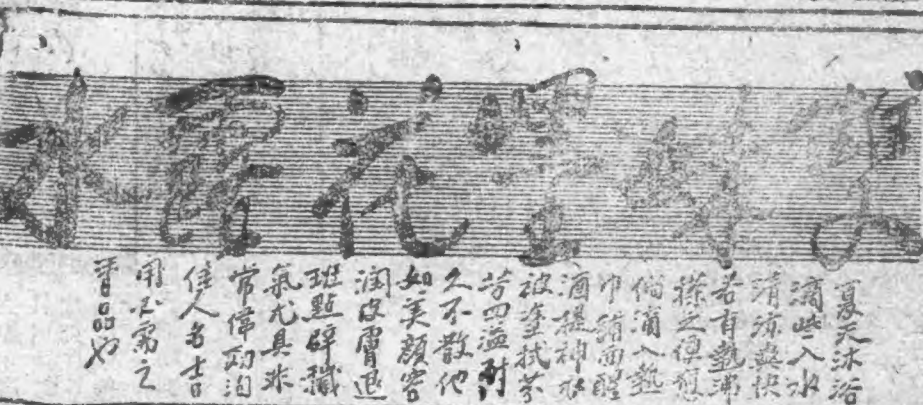 雙妹嘜花露水
夏天沐浴
滴些入水
清涼爽快
若有熱沸
搽之便愈
倘滴入熱
巾鋪面醒
酒提神衣
被塗拭芬
芳四溢耐
久不散他
如美顏容
潤皮膚退
班點辟穢
氣尤具非
常偉効洵
佳人名士日
用必需之
品也